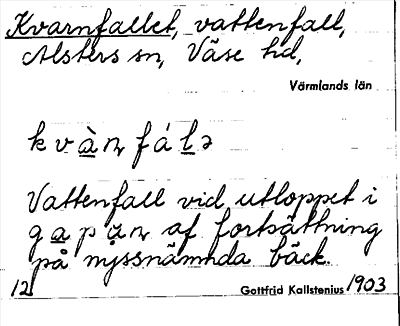 Kvarnfallet, vattenfall,
Alsters sn, Väse hd,
Värmlands län
k v à̠ n̥ f á l̠ ə
Vattenfall vid utloppet i
g a̠ p
af fortsättning
på nyssnämnda bäck.
12 Gottfrid Kallstenius 1903